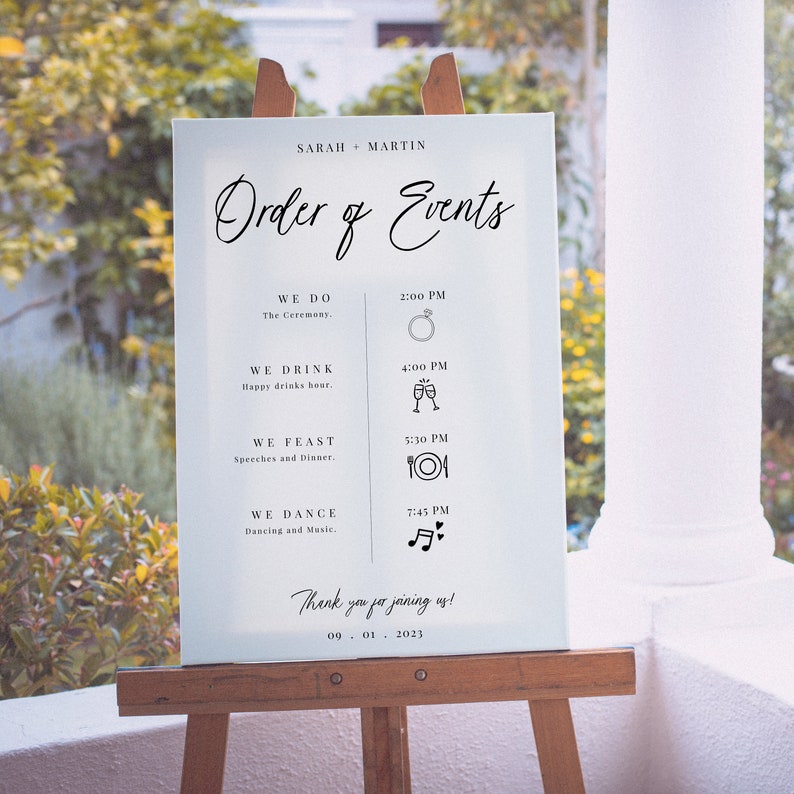 SARAH + MARTIN
Order of Events
WE DO
The Ceremony.
2:00 PM
WE DRINK
Happy drinks hour.
4:00 PM
WE FEAST
Speeches and Dinner.
5:30 PM
WE DANCE
Dancing and Music.
7:45 PM
Thank you for joining us!
09 . 01 . 2023